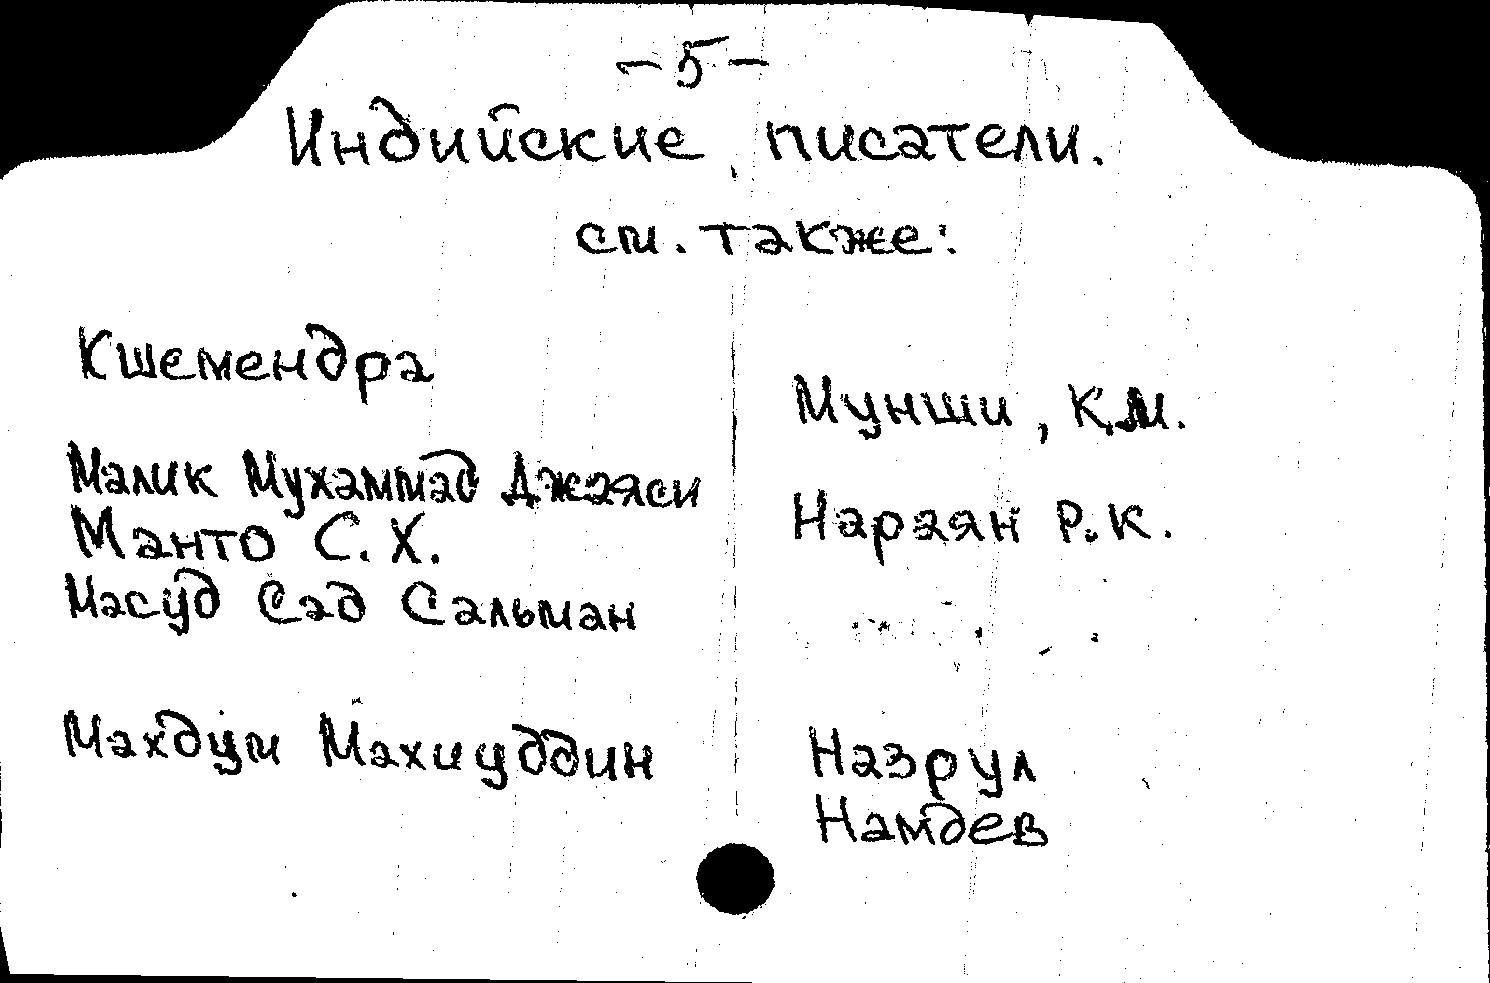 – 5 –
Индийские писатели.
см. также:
Кшемендра
Малик Мухаммад Джаяси
Манто С. Х.
Масуд Сад Сальман
Махдум Махиуддин
Мунши, К.М.
Нараян Р.К.
Назрул
Намдев